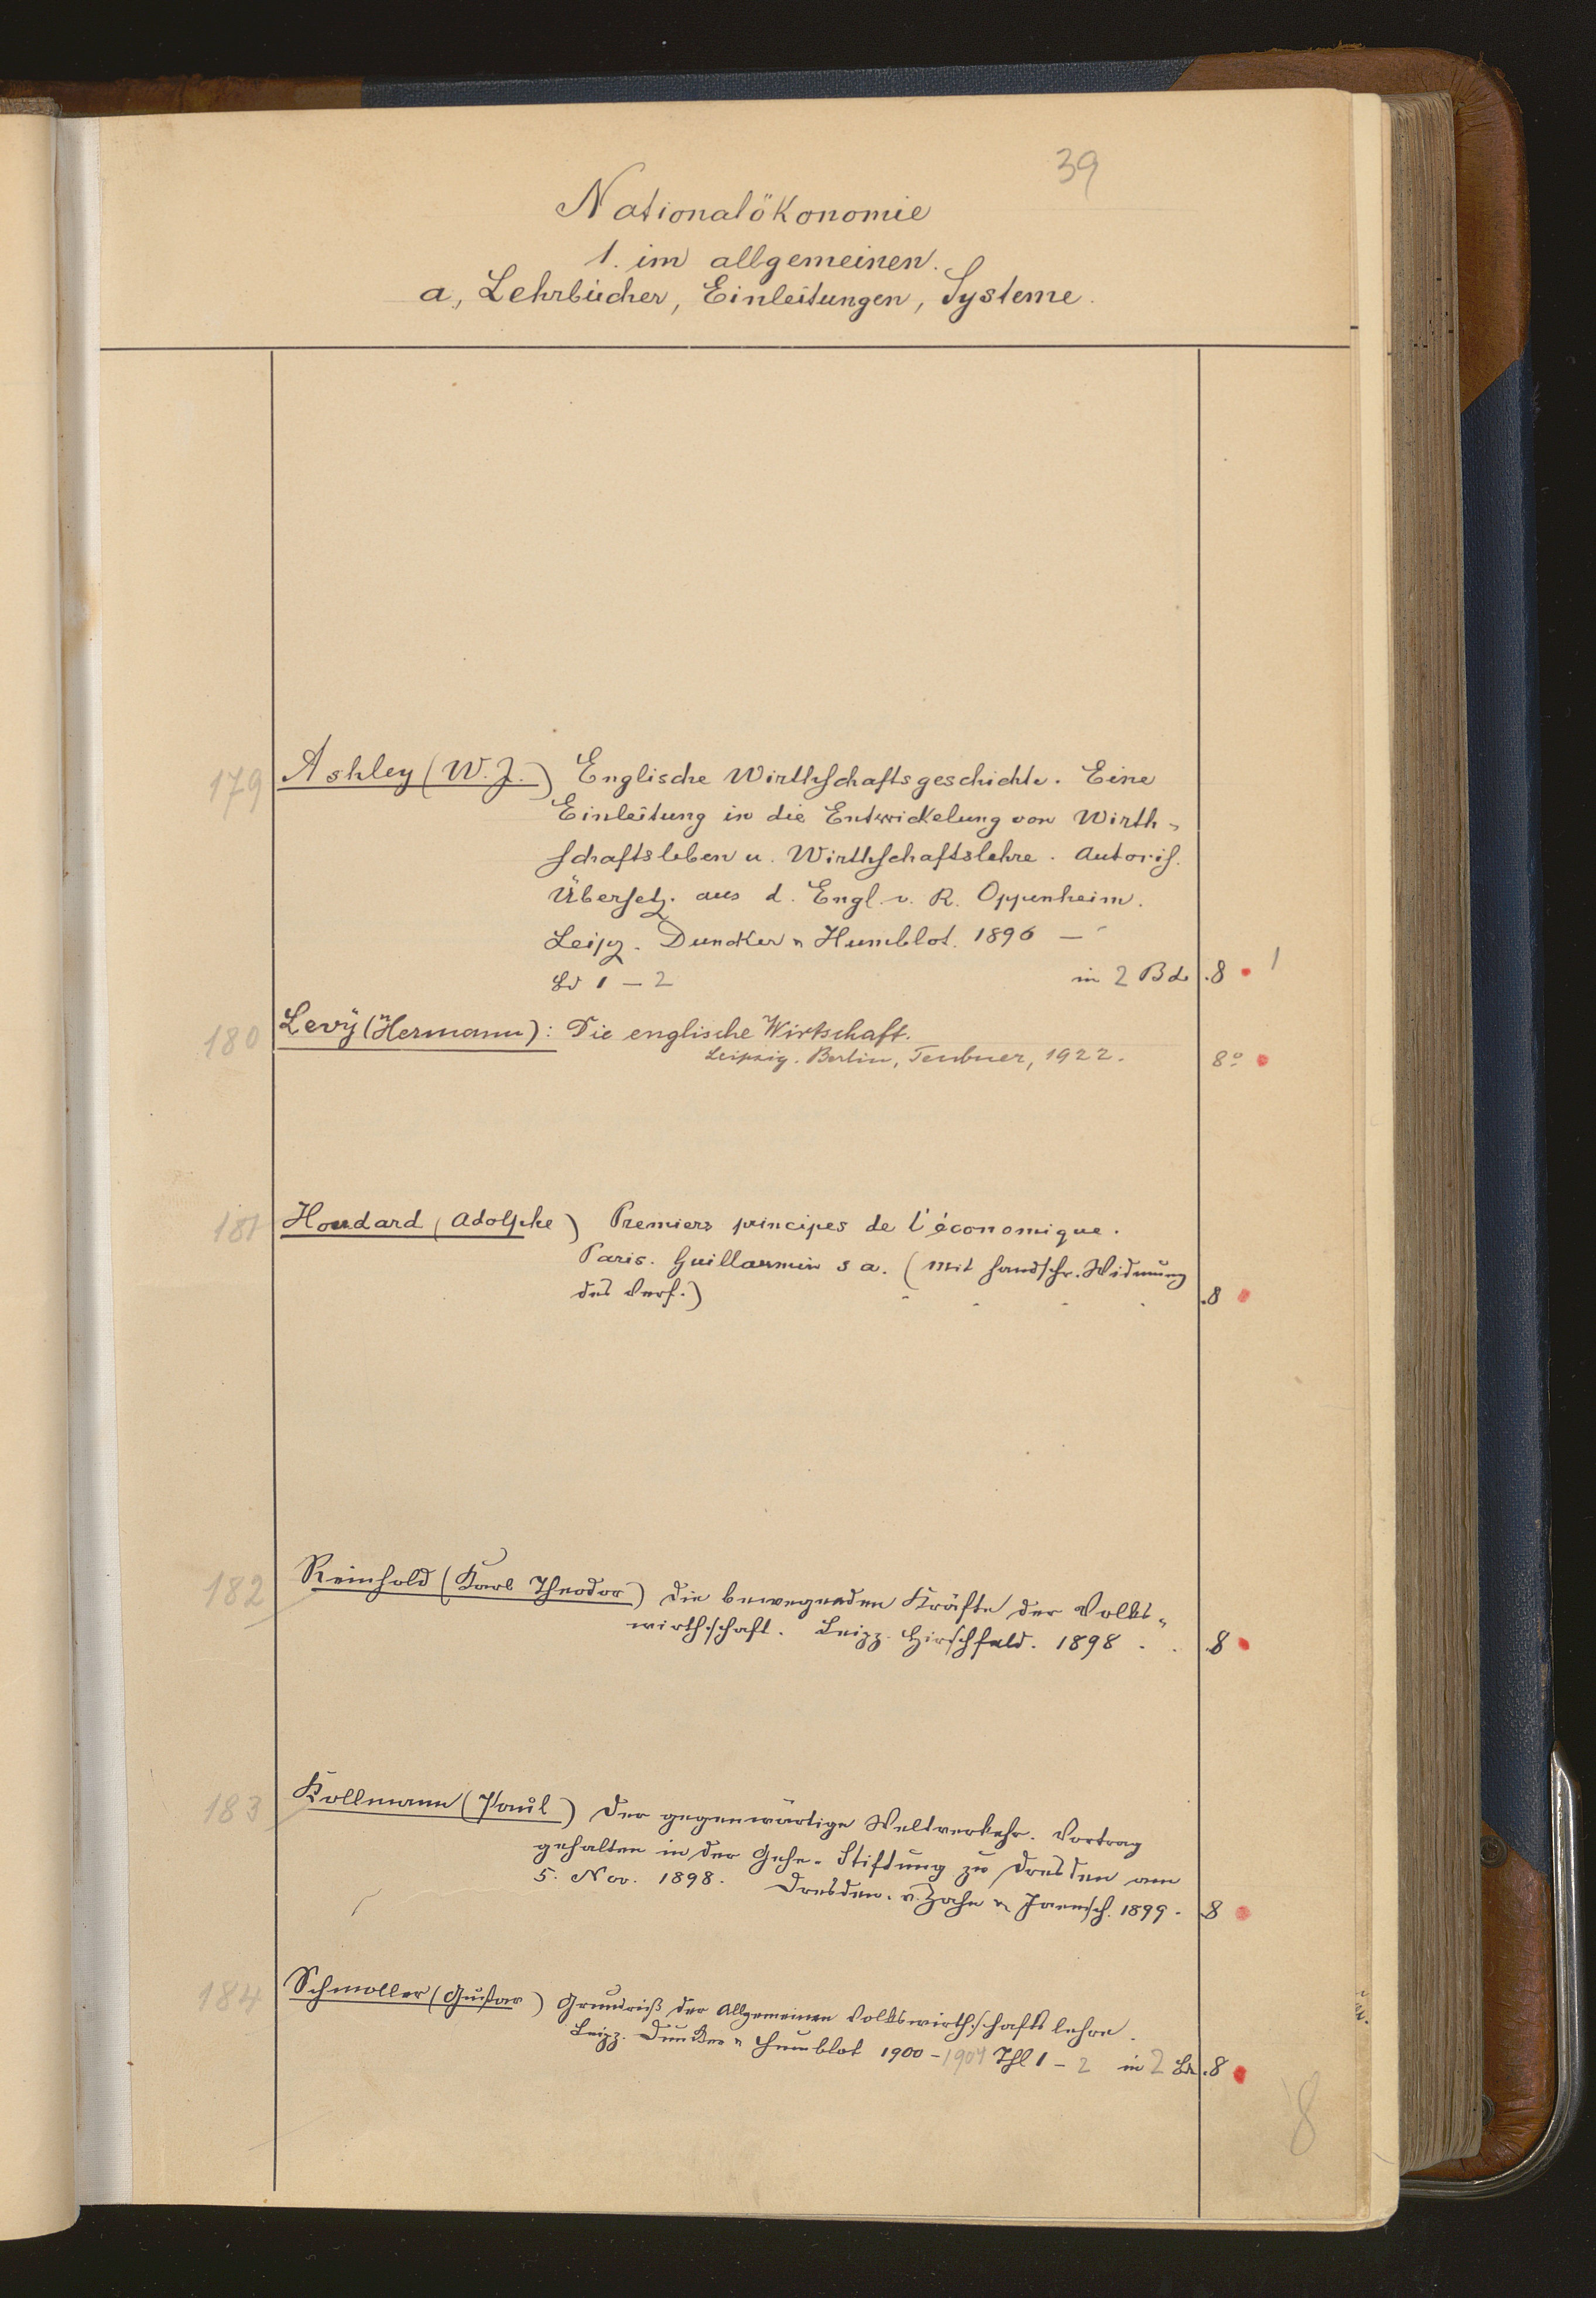 39
Nationalökonomie
1. im allgemeinen.
a, Lehrbücher, Einleitungen, Systeme.
179 Ashley (W. J.) Englische Wirthschaftsgeschichte. Eine
Einleitung in die Entwickelung von Wirth-
schaftsleben u. Wirthschaftslehre. Autoris.
Übersetz. aus d. Engl. v. R. Oppenheim.
Leipz. Duncker u Humblot. 1896 —
Bd 1 — 2 in 2 Bd .8 1
180 Levÿ (Hermann): Die englische Wirtschaft.
Leipzig. Berlin, Teubner, 1922. 8º
181 Houdard (Adolphe) Premiers principes de l'économique.
Paris. Guillaumin s a. (mit handschr. Widmung
des Verf.) .8
182 Reinhold (Karl Theodor) Die bewegenden Kräfte der Volks-
wirthschaft. Leipz. Hirschfeld. 1898 . . 8
183 Kollmann (Paul) Der gegenwärtige Weltverkehr. Vortrag
gehalten in der Gehe-Stiftung zu Dresden am
5. Nov. 1898. Dresden. v. Zahn u Jaensch. 1899. 8
184 Schmoller (Gustav) Grundriß der Allgemeinen Volkswirthschaftslehre.
Leipz. Duncker u Humblot 1900 - 1904 Thl 1 - 2 in 2 Bd .8
8